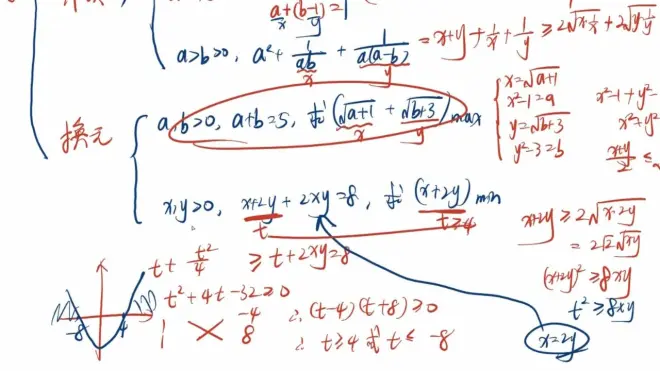 a+(b-1)=1
x y
a>b>0, a²+ 1/ab + 1/a(a-b) = x+y+1/x+1/y ≥ 2√x·1/x + 2√y·1/y
x y
换元
a,b>0, a+b=5, 求(√a+1 + √b+3)max
x y
x=√a+1
x²-1=a
y=√b+3
y²-3=b
x²-1+y²-
x²+y²
x+y/2 ≤
x,y>0, x+2y+2xy=8, 求(x+2y)min
t t≥4
x+2y ≥ 2√x·2y
=2√2√xy
(x+2y)² ≥ 8xy
t² ≥ 8xy
x=2y
t+ t²/4 ≥ t+2xy=8
t²+4t-32≥0
1 -4
1 8
∴(t-4)(t+8)≥0
∴ t≥4 或 t≤ -8
-8 4